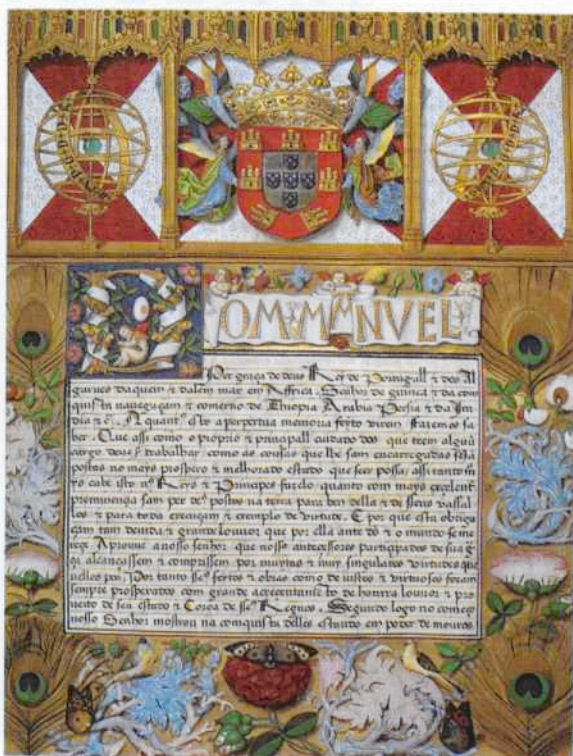 DOM MANVEL
Per graça de deus Rey de Portugall & dos Al
garues daquem & dalem mar em Affrica. Senhor de guinea & da com
quista nauegaçam & comercio de Ethiopia Arabia Persia & da In
dia &c. A quantos esta a perpetua memoria feyto virem fazemos sa
ber. Que assi como o proprio & principall cuidado dos que teem alguũ
cargo deue trabalhar como as cousas que lhe sam encarregadas seja
postas no mayor prospero & melhorado estado que seer possa, assi tanto
cabe isto Reys & Principes fazello quanto com mayor excelente
sam per postos na terra para bem della & de seus vassa
los & para toda execuçam & exemplo de virtude. E por que esta obriga
çam tam deuida & grande louuor que por ella ante & o mundo se me
rece. Aprouue a nosso senhor que nossos antecessores participados de sua
alcançassem & comprissem por muytas & muy singulares virtudes que
nelles pos. Por tanto feytos & obras como de justos & virtuosos foram
sempre prosperados com grande acrecentamento de honrra louuor & pro
ueito de seu estado & Coroa de Regnos. Seguindo logo no começo
nosso Senhor mostrou na comquista delles estando em poder de mouros